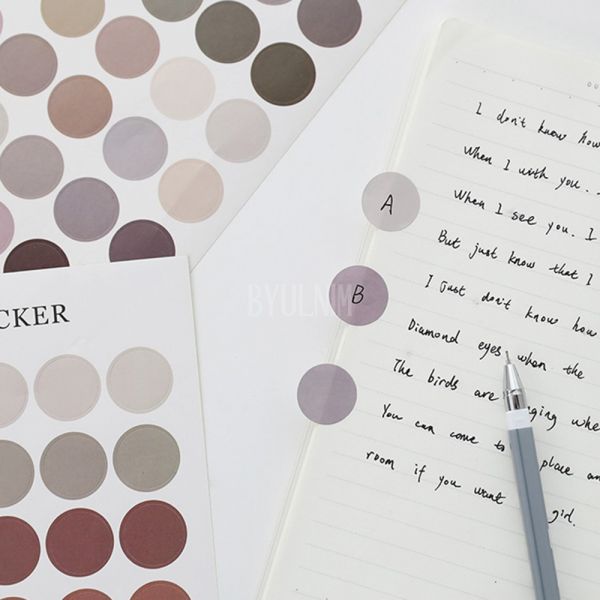 CKER
BYULNIM
A
B
I don't know how
When I with you.
When I see you. I
But just know that I
I just don't know how
Diamond eyes when the
The birds are whe
You can come place an
room if you want girl.